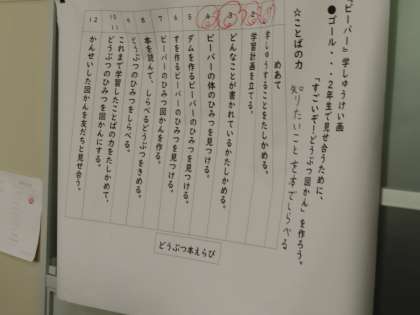 『ビーバー』学しゅうけい画
●ゴール・・・2年生で見せ合うために、
「すごいぞ!どうぶつ図かん」を作ろう。
☆ことばの力 知りたいことを本でしらべる
めあて
学しゅうすることをたしかめる。
2 学習計画を立てる。
3 どんなことが書かれているかたしかめる。
4 ビーバーの体のひみつを見つける。
5 ダムを作るビーバーのひみつを見つける。
6 すを作るビーバーのひみつを見つける。
7 ビーバーのひみつ図かんを作る。
8 本を読んで、しらべるどうぶつをきめる。
9 どうぶつのひみつをしらべる。
10 11 これまで学習したことばの力をたしかめて、どうぶつのひみつを図かんにする。
12 かんせいした図かんを友だちと見せ合う。
どうぶつ本えらび